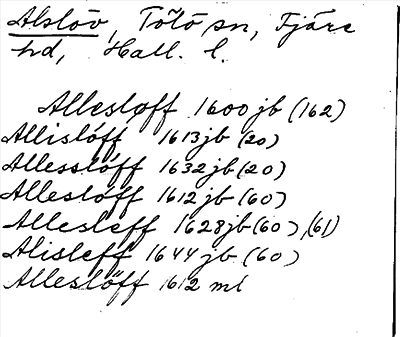 Alslöv, Tölö sn, Fjäre
hd, Hall. l.
Allesloff 1600 jb (162)
Allislöff 1613 jb (20)
Allesslöff 1632 jb (20)
Allesloff 1612 jb (60)
Allesleff 1628 jb (60), (61)
Alisleff 1644 jb (60)
Alleslöff 1612 ml